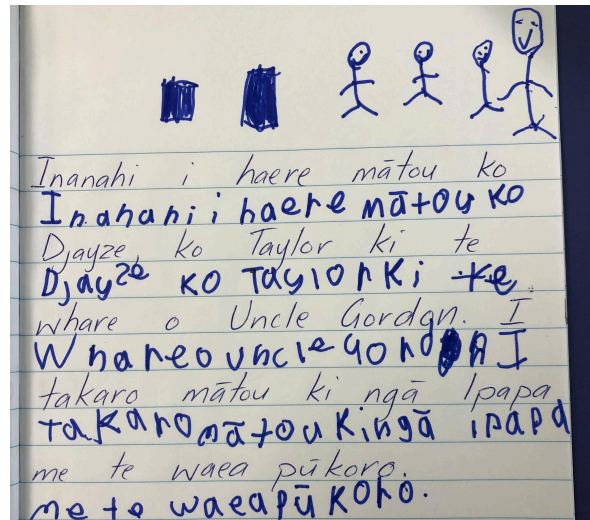 Inanahi i haere mātou ko
Inahahi i haere mātou ko
Djayze, ko Taylor ki te
Djayze ko Taylor ki te
whare o Uncle Gordon. I
Whare o uncle Gordon I
takaro mātou ki ngā Ipapa
takaro mātou ki ngā ipapa
me te waea pūkoro.
me te waea pūkoro.